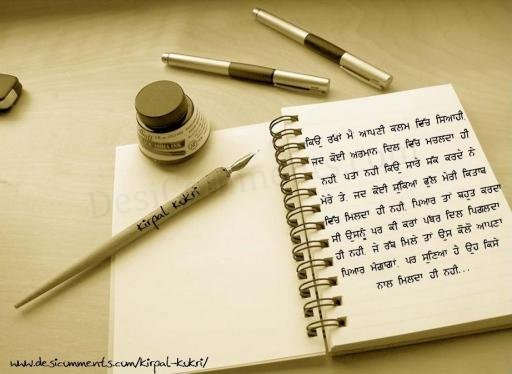 ਕਿਉਂ ਰੱਖਾਂ ਮੈਂ ਆਪਣੀ ਕਲਮ ਵਿੱਚ ਸਿਆਹੀ,
ਜਦ ਕੋਈ ਅਰਮਾਨ ਦਿਲ ਵਿੱਚ ਮਚਲਦਾ ਹੀ
ਨਹੀਂ, ਪਤਾ ਨਹੀਂ ਕਿਉਂ ਸਾਰੇ ਸ਼ੱਕ ਕਰਦੇ ਨੇ
ਮੇਰੇ ਤੇ, ਜਦ ਕੋਈ ਸੁੱਕਿਆ ਫੁੱਲ ਮੇਰੀ ਕਿਤਾਬ
ਵਿੱਚ ਮਿਲਦਾ ਹੀ ਨਹੀਂ, ਪਿਆਰ ਤਾਂ ਬਹੁਤ ਕਰਦਾ
ਸੀ ਉਸਨੂੰ, ਪਰ ਕੀ ਕਰਾਂ ਪੱਥਰ ਦਿਲ ਪਿਗਲਦਾ
ਹੀ ਨਹੀਂ, ਜੇ ਰੱਬ ਮਿਲੇ ਤਾਂ ਉਸ ਕੋਲੋਂ ਆਪਣਾ
ਪਿਆਰ ਮੰਗਾਂਗਾ, ਪਰ ਸੁਣਿਆ ਹੈ ਉਹ ਕਿਸੇ
ਨਾਲ ਮਿਲਦਾ ਹੀ ਨਹੀਂ...
Kirpal Kukri
www.desicomments.com/kirpal-kukri/